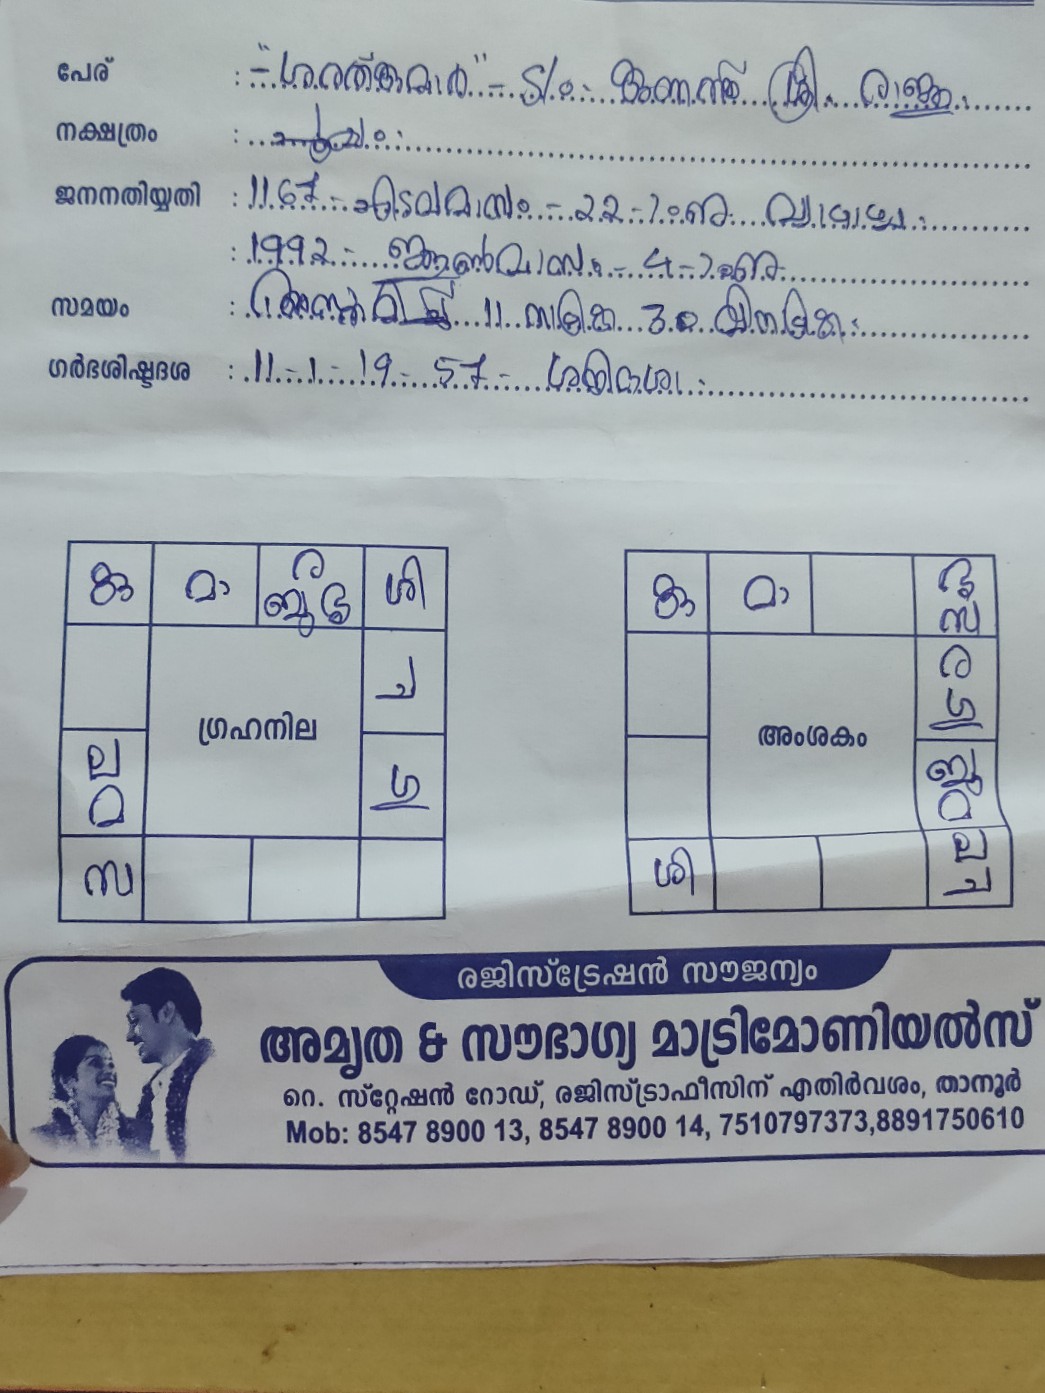 പേര് : "ശരത്കുമാർ" - S/o.
നക്ഷത്രം : പൂയം :
ജനനതിയ്യതി : 1167 - എടവമാസം - 22 -
: 1992 - ജൂൺമാസം - 4 -
സമയം : 11 നാഴിക 30 വിനാഴിക :
ഗർഭശിഷ്ടദശ : 11 - 1 - 19 - 57 - ശനിദശാ :
കു മാ ര ബു ശു ശി
ച
ഗു
ല മ
സ
ഗ്രഹനില
കു മാ
ര ഗു
ല ച
ശി
അംശകം
രജിസ്ട്രേഷൻ സൗജന്യം
അമൃത & സൗഭാഗ്യ മാട്രിമോണിയൽസ്
റെ. സ്റ്റേഷൻ റോഡ്, രജിസ്ട്രാഫീസിന് എതിർവശം, താനൂർ
Mob: 8547 8900 13, 8547 8900 14, 7510797373,8891750610